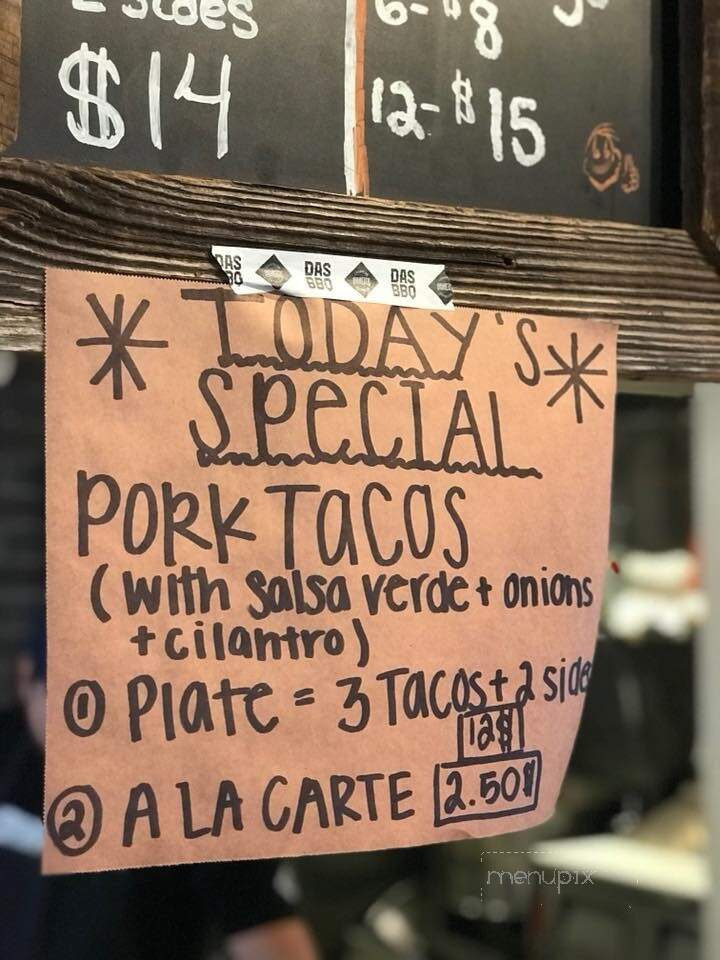 2 sides
$14
6-$8
12-$15
DAS BBQ DAS BBQ DAS BBQ
TODAY'S
SPECIAL
PORK TACOS
(with salsa verde + onions
+ cilantro)
① Plate = 3 Tacos + 2 side
12$
② A LA CARTE 2.50$
menupix